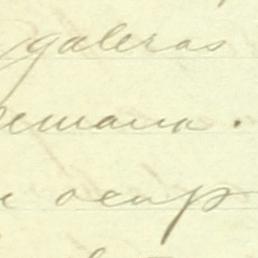 galeras
semana.
ocup